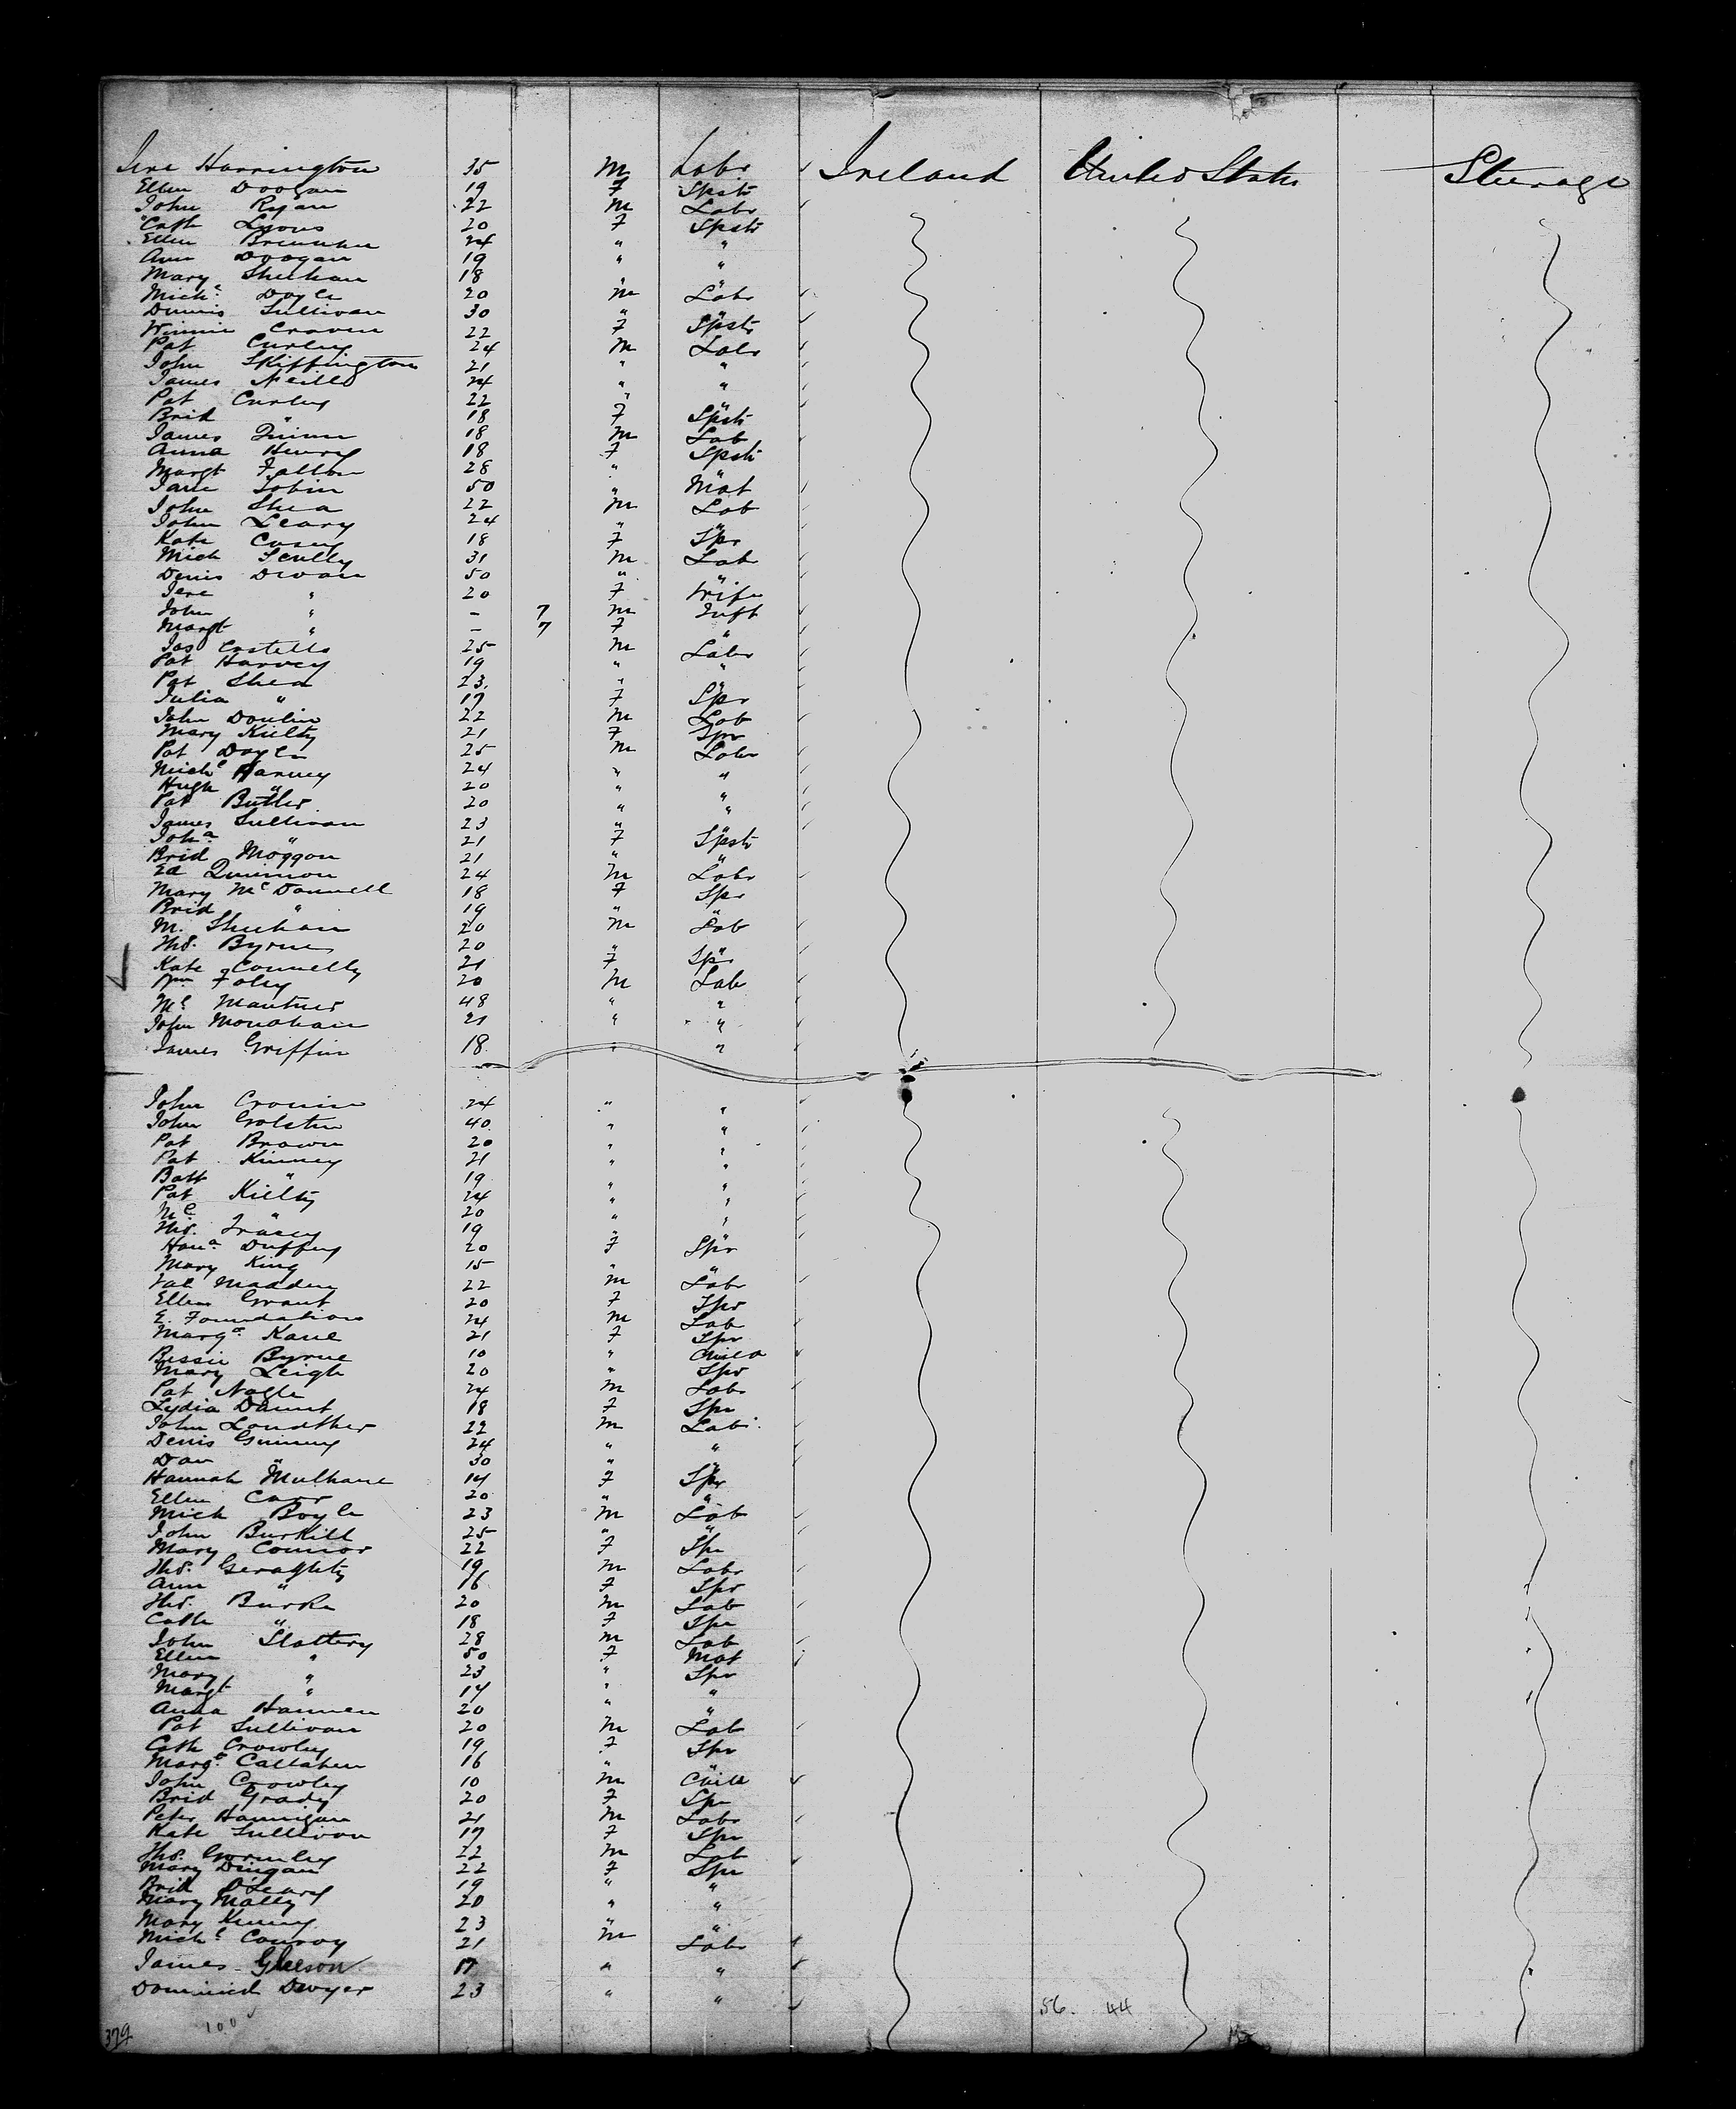 Jere Harrington 35 M Labr Ireland United States Steerage
Ellen Doogan 19 F Spstr
John Ryan 22 M Labr
Cath Lyons 20 F Spstr
Ellen Brennan 24 " "
Ann Doogan 19 " "
Mary Sheehan 18 " "
Michl Doyle 20 M Labr
Dennis Sullivan 30 " "
Winnie Craven 22 F Spstr
Pat Curley 24 M Labr
John Skiffington 21 " "
James Neill 24 " "
Pat Curley 22 " "
Brid " 18 F Spstr
James Quinn 18 M Lab
Anna Henry 18 F Spstr
Margt Fallon 28 " "
Jane Tobin 50 " Mat
John Shea 22 M Lab
John Leary 24 " "
Kate Casey 18 F Spr
Mich Scully 31 M Lab
Denis Dwan 50 " "
Jere " 20 F Wife
John " - 7 M Inft
Margt " - 7 F "
Jas Costello 25 M Labr
Pat Harvey 19 " "
Pat Shea 23 " "
Julia " 17 F Spr
John Doulin 22 M Lab
Mary Kielty 21 F Spr
Pat Doyle 25 M Labr
Michl Harvey 24 " "
Hugh " 20 " "
Pat Butler 20 " "
James Sullivan 23 " "
Joha " 21 F Spstr
Brid Moggan 21 " "
Ed Quinnon 24 M Labr
Mary McDonnell 18 F Spr
Brid " 19 " "
M. Sheehan 20 M Lab
Thos. Byrnes 20 " "
Kate Connelly 21 F Spr
Wm Foley 20 M Lab
Ml Mantner 48 " "
John Monahan 21 " "
James Griffin 18 " "
John Cronin 24 " "
John Golsten 40 " "
Pat Brown 20 " "
Pat Kinney 21 " "
Batt " 19 " "
Pat Kielty 24 " "
Ml " 20 " "
Thos. Tracey 19 " "
Hona Duffey 20 F Spr
Mary King 15 " "
Pat Madden 22 M Labr
Ellen Grant 20 F Spr
E. Foundation 24 M Lab
Margt Kane 21 F Spr
Bessie Byrne 10 " Child
Mary Leigh 20 " Spr
Pat Nagle 24 M Labr
Lydia Daunt 18 F Spr
John Londther 22 M Labr
Denis Guinney 24 " "
Dan " 30 " "
Hannah Mulhane 14 F Spr
Ellen Carr 20 " "
Mich Boyle 23 M Lab
John Burkill 25 " "
Mary Connor 22 F Spr
Thos. Geraghty 19 M Labr
Ann " 16 F Spr
Thos. Burke 20 M Lab
Cath " 18 F Spr
John Slattery 28 M Lab
Ellen " 50 F Mat
Mary " 23 " Spr
Margt " 14 " "
Anna Hannen 20 " "
Pat Sullivan 20 M Lab
Cath Crowley 19 F Spr
Margt Callahen 16 " "
John Crowley 10 M Child
Brid Grady 20 F Spr
Peter Hannigan 21 M Labr
Kate Sullivan 17 F Spr
Thos. Gormley 22 M Lab
Mary Dingan 22 F Spr
Brid O'Leary 19 " "
Mary Mally 20 " "
Mary Kenny 23 " "
Michl Conroy 21 M Labr
James Gleeson 17 " "
Dominick Dwyer 23 " "
56. 44
100
379